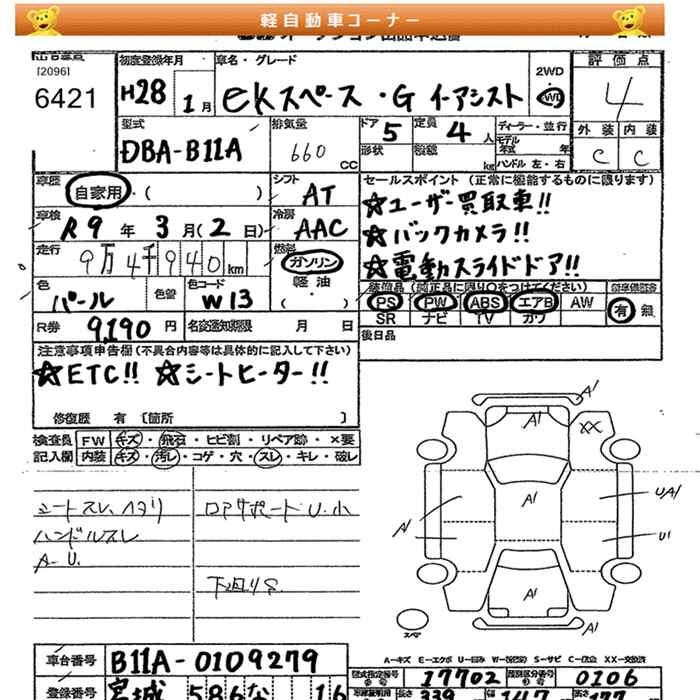 軽自動車コーナー
[2096]
6421
初度登録年月
H28 1月
車名・グレード
eKスペース・G e-アシスト
2WD
4WD
評価点
4
外装 内装
C C
型式
DBA-B11A
排気量
660 CC
ドア 5
形状
定員 4 人
積載 kg
ディーラー・並行
モデル年式 年
ハンドル 左・右
車歴
自家用・( )
シフト
AT
車検
R9年 3月(2日)
冷房
AAC
走行
9万4千940km
燃料
ガソリン
軽油
( )
色
パール
色替
色コード
W13
R券
9190円
名変通知期限 月 日
セールスポイント (正常に機能するものに限ります)
☆ユーザー買取車!!
☆バックカメラ!!
☆電動スライドドア!!
装備品(純正品に限り○をつけてください)
PS PW ABS エアB AW
SR ナビ TV カワ
有 無
後日品
注意事項申告欄(不具合内容等は具体的に記入して下さい)
☆ETC!! ☆シートヒーター!!
修復歴 有 〔箇所 〕
検査員 FW キズ・飛石・ヒビ割・リペア跡・×要
記入欄 内装 キズ・汚レ・コゲ・穴・スレ・キレ・破レ
シートスレ、ヘタリ
ハンドルスレ
A-U.
ロアサポート U.小
下廻りS
A1
A1
XX
A1
UA1
A1
U1
A1
A1
スペア
A-キズ E-エクボ U-凹み W-(補修) S-サビ C-腐食 XX-交換済
車台番号
B11A-0109279
型式指定番号
17702
類別区分番号
0106
登録番号
宮城 586 な 16
長さ 339
147